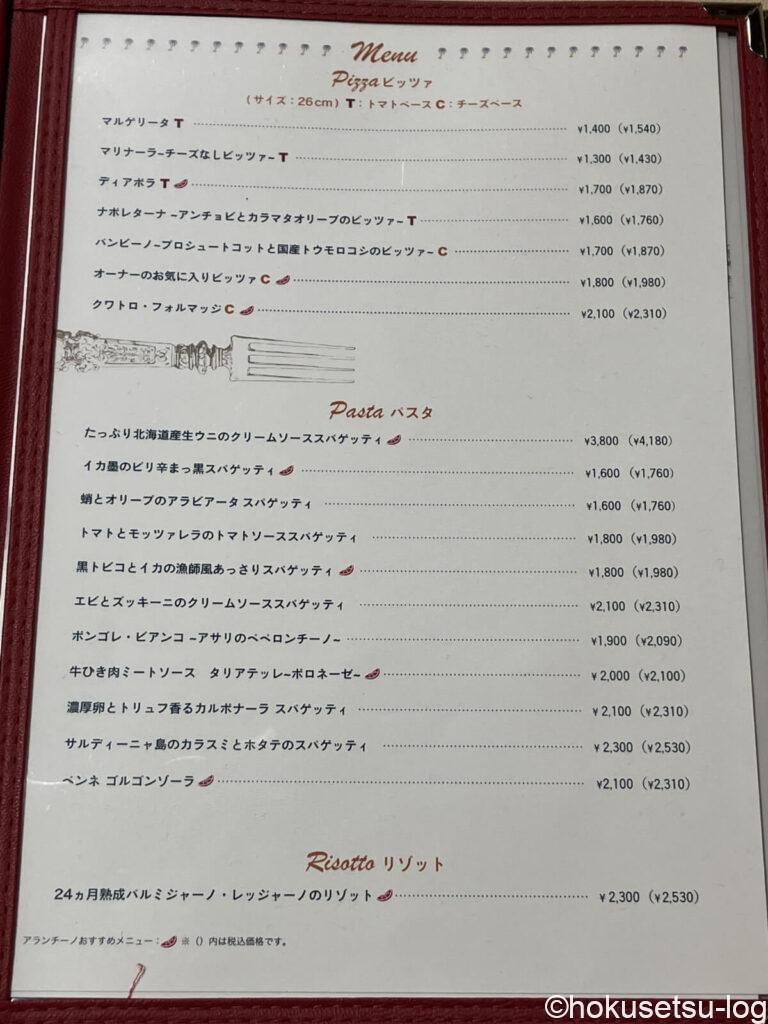 Menu
Pizza ピッツァ
(サイズ:26cm) T:トマトベース C:チーズベース
マルゲリータ T ¥1,400 (¥1,540)
マリナーラ~チーズなしピッツァ~ T ¥1,300 (¥1,430)
ディアボラ T ¥1,700 (¥1,870)
ナポレターナ ~アンチョビとカラマタオリーブのピッツァ~ T ¥1,600 (¥1,760)
バンビーノ~プロシュートコットと国産トウモロコシのピッツァ~ C ¥1,700 (¥1,870)
オーナーのお気に入りピッツァ C ¥1,800 (¥1,980)
クワトロ・フォルマッジ C ¥2,100 (¥2,310)
Pasta パスタ
たっぷり北海道産生ウニのクリームソーススパゲッティ ¥3,800 (¥4,180)
イカ墨のピリ辛まっ黒スパゲッティ ¥1,600 (¥1,760)
蛸とオリーブのアラビアータ スパゲッティ ¥1,600 (¥1,760)
トマトとモッツァレラのトマトソーススパゲッティ ¥1,800 (¥1,980)
黒トビコとイカの漁師風あっさりスパゲッティ ¥1,800 (¥1,980)
エビとズッキーニのクリームソーススパゲッティ ¥2,100 (¥2,310)
ボンゴレ・ビアンコ ~アサリのペペロンチーノ~ ¥1,900 (¥2,090)
牛ひき肉ミートソース タリアテッレ~ボロネーゼ~ ¥2,000 (¥2,100)
濃厚卵とトリュフ香るカルボナーラ スパゲッティ ¥2,100 (¥2,310)
サルディーニャ島のカラスミとホタテのスパゲッティ ¥2,300 (¥2,530)
ペンネ ゴルゴンゾーラ ¥2,100 (¥2,310)
Risotto リゾット
24ヵ月熟成パルミジャーノ・レッジャーノのリゾット ¥2,300 (¥2,530)
アランチーノおすすめメニュー: ※ () 内は税込価格です。
©hokusetsu-log